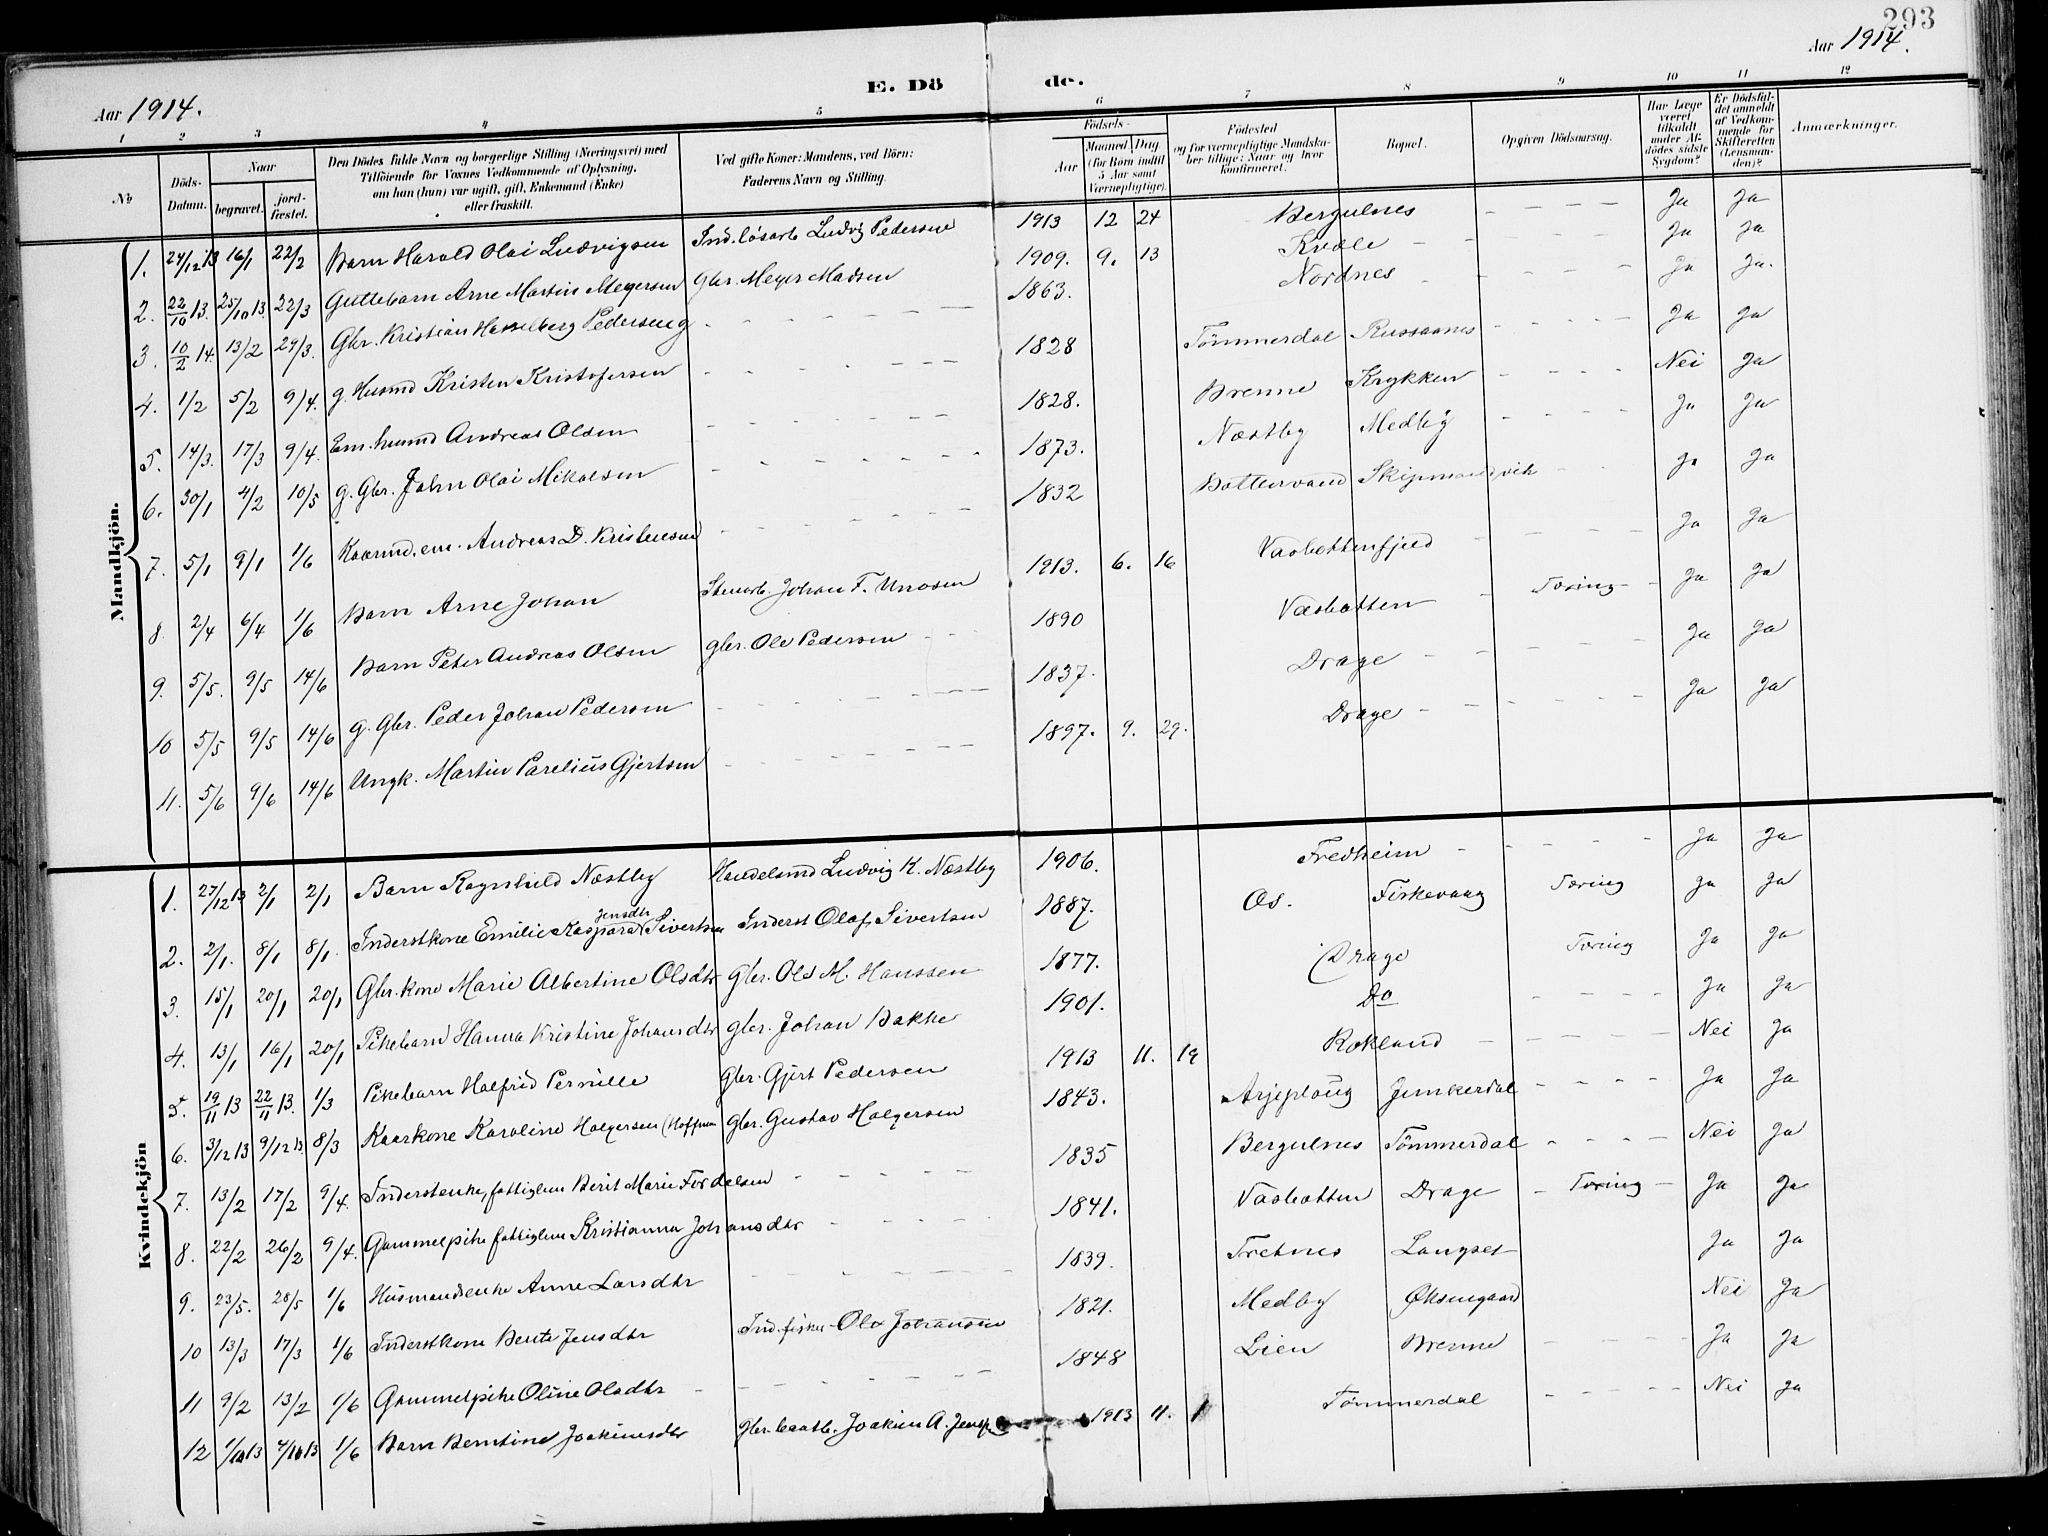 293
Aar 1914.
E. Dö de.
Aar 1914.
1 2 3 4 5 6 7 8 9 10 11 12
No
Döds-Datum.
Naar
begravet. jord-fæstet.
Den Dödes fulde Navn og borgerlige Stilling (Næringsvei) med Tilföiende for Voxnes Vedkommende af Oplysning, om han (hun) var ugift, gift, Enkemand (Enke) eller fraskilt.
Ved gifte Koner: Mandens, ved Börn: Faderens Navn og Stilling.
Födsels-
Aar Maaned Dag (for Börn indtil 5 Aar samt Værnepligtige).
Födested og for værnepligtige Mandskaber tillige: Naar og hvor konfirmeret.
Bopæl.
Opgiven Dödsaarsag.
Har Læge været tilkaldt under Afdödes sidste Sygdom?
Er Dödsfaldet anmeldt af Vedkommende for Skifteretten (Lensmanden)?
Anmærkninger.
Mandkjön.
1. 24/12 13 16/1 22/2 Barn Harald Olai Ludvigsen Ind. løsarb. Ludvig Pedersen 1913 12 24 Bergulnes Ja Ja
2. 22/10 13. 25/10 13. 22/3 Guttebarn Arne Martin Meyersen Gbr. Meyer Madsen 1909. 9. 13 Kvæle Ja Ja
3. 10/2 14. 13/2 29/3. Gbr. Kristian Hasselberg Pedersen g 1863. Nordnes Ja Ja.
4. 1/2 5/2 9/4. g. Husmd Kristen Kristofersen 1828 Tömmerdal Russaanes Ja Ja
5. 14/3. 17/3 9/4. Em. husmd Andreas Olsen 1828. Brenne Krykken Nei Ja
6. 30/1 4/2 10/5 g. Gbr. John Olai Mikalsen 1873. Næstby Medby Ja Ja
7. 5/1 9/1 1/6 Kaarmd. em. Andreas D. Kristensen 1832 Bottenvand Skipmandvik Ja Ja
8. 2/4 6/4 1/6 Barn Arne Johan Stenarb. Johan F. Unosen 1913. 6. 16 Vasbottenfjeld Ja Ja
9. 5/5. 9/5 14/6 Barn Peter Andreas Olsen gbr. Ole Pedersen 1890 Vasbotten Tæring Ja Ja
10 5/5 9/5 14/6 g. Gbr. Peder Johan Pedersen 1837. Drage Ja Ja
11. 5/6 9/6 14/6 Ungk. Martin Parelius Gjertsen 1897. 9. 29. Drage Ja Ja
Kvindekjön
1. 27/12 13 2/1 2/1 Barn Ragnhild Næstby Handelsmd Ludvig K. Næstby 1906. Fredheim Ja Ja
2. 2/1. 8/1 8/1. Inderstkone Emilie Kaspara Jensdtr Sivertsen Inderst Olaf Sivertsen 1887. Os. Fiskevaag Tæring Ja Ja
3. 15/1 20/1 20/1 Gbr. kone Marie Albertine Olsdtr Gbr. Ole M. Hanssen 1877. Drage Tæring Ja Ja
4. 13/1 16/1 20/1 Pikebarn Hanna Kristine Johansdtr gbr. Johan Bakke 1901. Do Ja Ja
5. 19/11 13 22/11 13. 1/3 Pikebarn Halfrid Pernille Gbr. Gjert Pedersen 1913 11. 19 Rokland Nei Ja
6. 3/12 13 9/12 13. 8/3 Kaarkone Karoline Holgersen (Hoffman Gbr. Gustav Holgersen 1843. Arjeploug Junkerdal Ja Ja
7. 13/2 17/2 9/4. Inderstenke, fattiglem Berit Marie Fordelsen 1835 Bergulnes Tömmerdal Nei Ja
8. 22/2 26/2 9/4. Gammelpike fattiglem Kristianna Johansdtr 1841. Vasbotten Drage Tæring Ja Ja
9. 23/5. 28/5 1/6 Husmandsenke Anne Larsdtr 1839. Tretnes Langset Ja Ja
10 13/3 17/3 1/6 Inderstkone Berit Jensdtr Ind. fisker Ola Johansen 1821. Medby Øksengaard Nei Ja
11 9/2 13/2 1/6 Gammelpike Oline Olsdtr 1848 Lien Brenne Ja Ja
12 13 13 1/6 Barn Berntine Joakimsdtr Gbr. Joakim A. 1913 11. 1 Tömmerdal Nei Ja